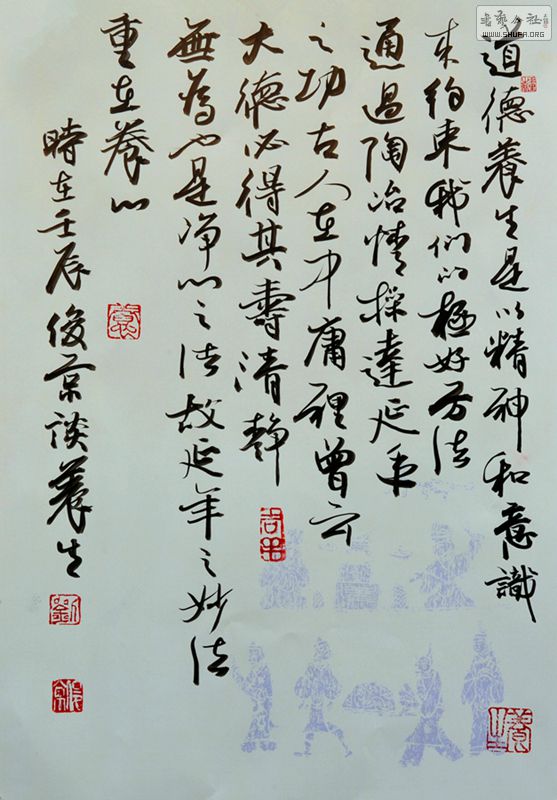 書藝公社
www.SHUFA.ORG
道德養生是以精神和意識
来約束我們的極好方法
通過陶冶情操達延年
之功古人在中庸裡曾云
大德必得其壽清静
無為也是净心之法故延年之妙法
重在養心
時在壬辰俊京談養生
劉
養生